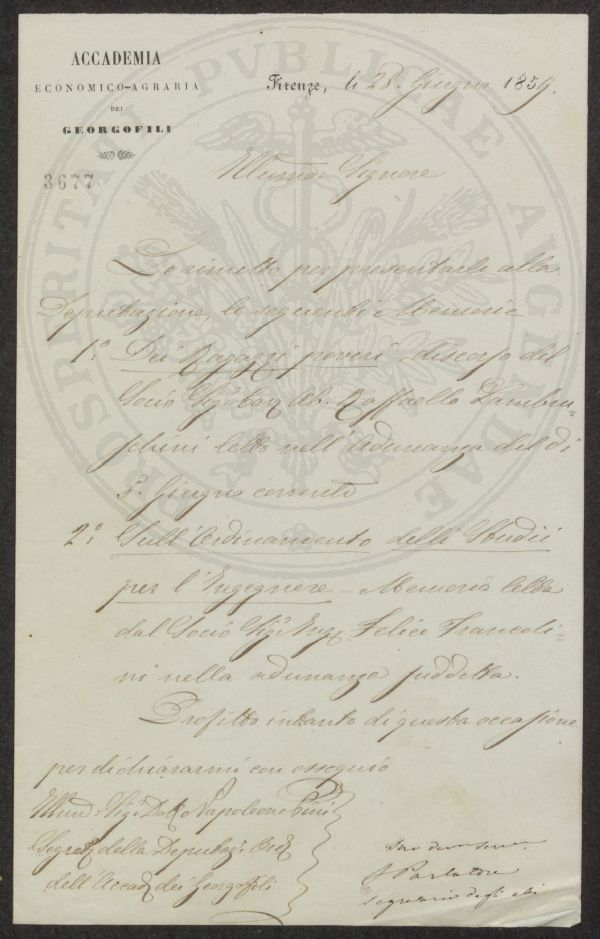 ACCADEMIA
ECONOMICO-AGRARIA
DEI
GEORGOFILI
3677
Firenze, li 28. Giugno 1859.
Illumo Signore
Le rimetto per presentarle alla
Deputazione, le seguenti Memorie
1º Dei Ragazzi poveri - discorso del
Socio Sigr Cav. Ab. Raffaello Lambru-
schini letto nell'Adunanza del dì
5. Giugno corrente
2º Sull'Ordinamento delli Studii
per l'Ingegnere - Memoria letta
dal Socio Sigr Ing. Felice Francoli-
ni nella adunanza suddetta.
Profitto intanto di questa occasione
per dichiararmi con ossequio
Sigr Dotto Napoleone Pini
Segreto della Deputaze Orda
dell'Accada dei Georgofili
Suo devmo serv.
F Parlatore
segretario degli atti
PROSPERITATI PVBLICAE AVGENDAE